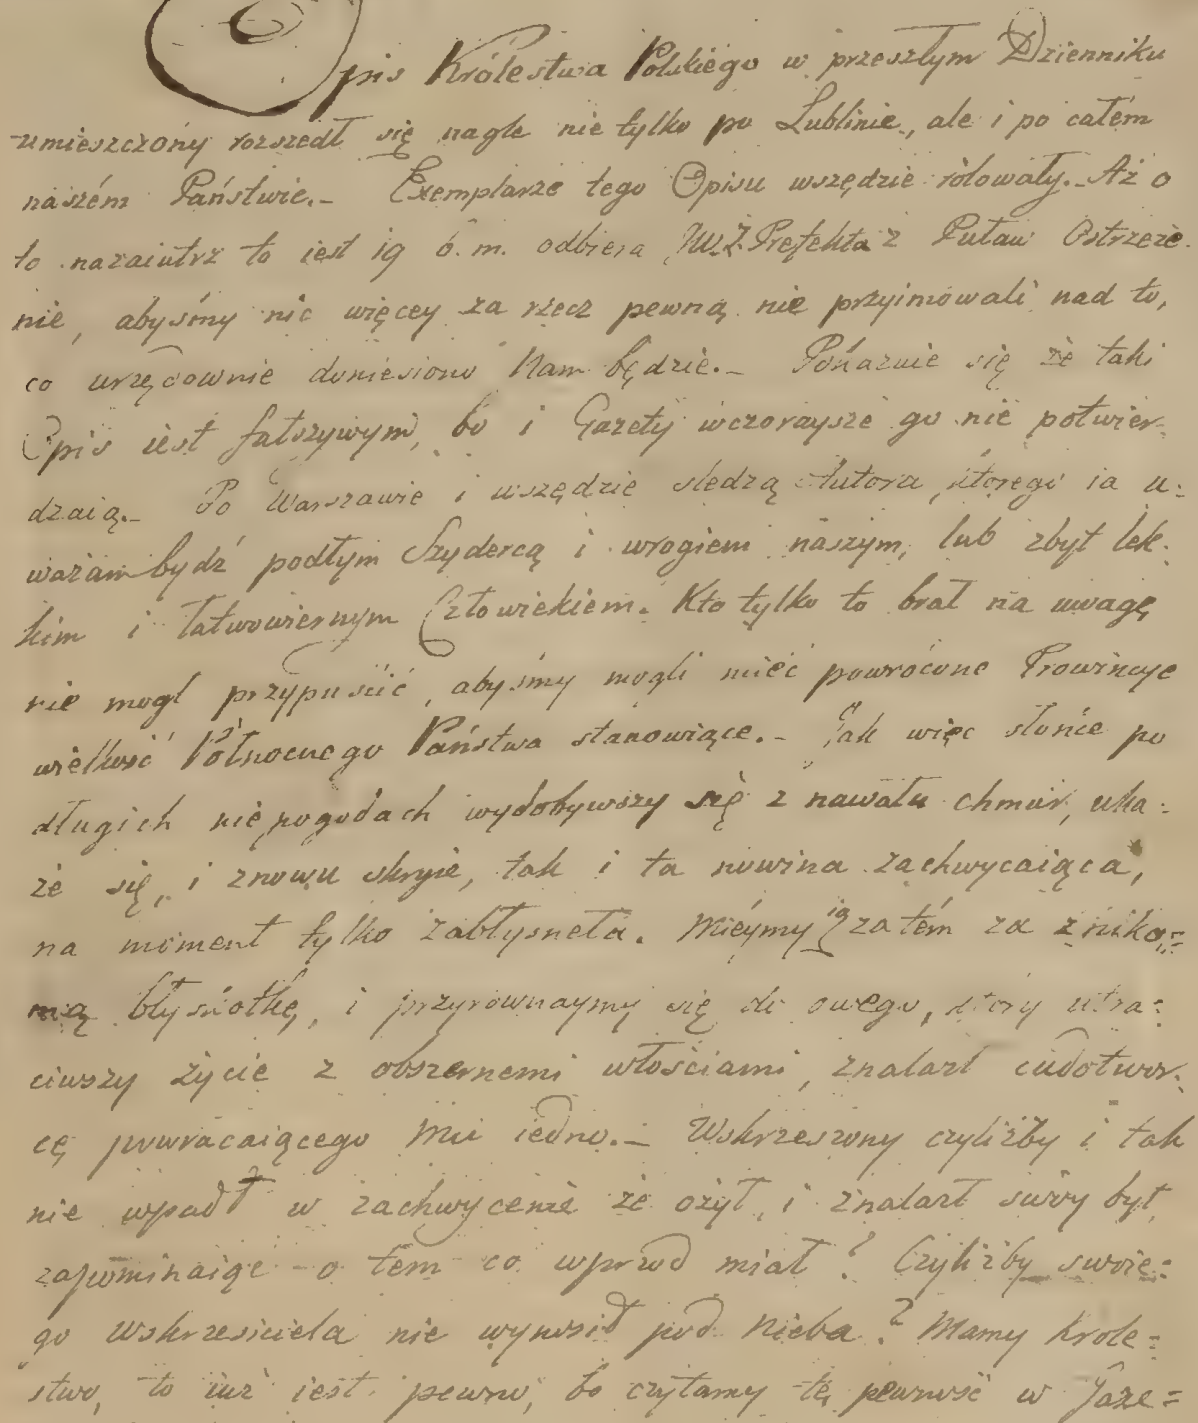 Opis Królestwa Polskiego w przeszłym Dzienniku
umieszczony rozszedł się nagle nie tylko po Lublinie, ale i po całém
naszém Państwie.- Exemplarze tego Opisu wszędzie rólowały.- Aż o
to nazaiutrz to iest 19 b.m. odbiera JW.J. Prefekta z Puław Ostrzeże-
nie, abyśmy nic więcey za rzecz pewną nie przyimowali nad to,
co urzędownie doniesiono Nam będzie.- Pokazuie się że taki
Opis iest fałszywym, bo i Gazety wczoraysze go nie potwier-
dzaią.- Po Warszawie i wszędzie sledzą Autora, ktorego ia u-
ważam bydź podłym Szydercą i wrogiem naszym, lub zbyt lek-
kim i łatwowiernym Człowiekiem. Kto tylko to brał na uwagę
nie mogł przypuścić, abyśmy mogli mieć powrócone Prowincye
wielkość Północnego Państwa stanowiące.- Jak więc słońce po
długich niepogodach wydobywszy się z nawału chmur, uka-
że się, i znowu skryie, tak i ta nowina zachwycaiąca,
na moment tylko zabłysneła. Mieymy ią zatém za zniko-
mą błyskotkę, i przyrównaymy się do owego, ktory utra-
ciwszy życie z obszernemi włościami, znalazł cudotwor-
cę powracaiącego Mu iedno.- Wskrzeszony czyliżby i tak
nie wpadł w zachwycenie że ożył, i znalazł swóy byt,
zapominaiąc o tem co wprzod miał? Czyliżby swoie-
go Wskrzesiciela nie wynosił pod Nieba? Mamy Krole-
stwo, to iuż iest pewno, bo czytamy tę pewność w Gaze-